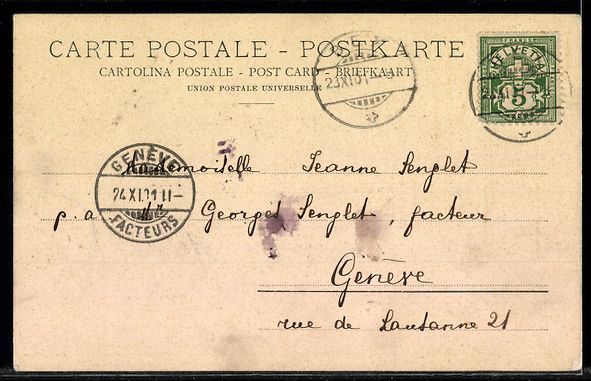 CARTE POSTALE - POSTKARTE
CARTOLINA POSTALE - POST CARD - BRIEFKAART
UNION POSTALE UNIVERSELLE
23.XI.01
FRANCO
HELVETIA
5
GENÈVE
24.XI.01 11-
FACTEURS
Mademoiselle Jeanne Senglet
p. a Mr Georges Senglet, facteur
Genève
rue de Lausanne 21